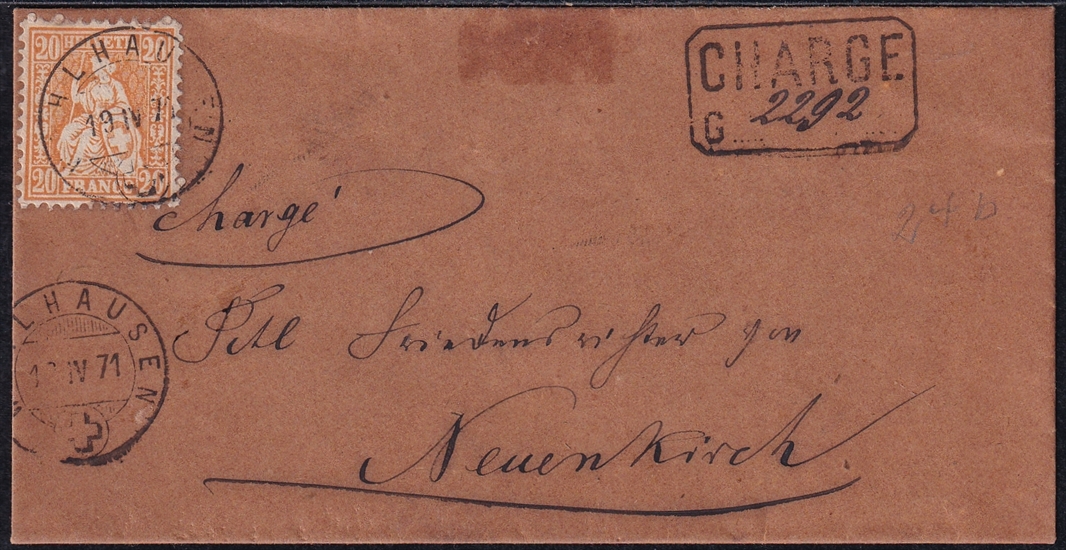 20 HELVETIA 20
20 FRANCO 20
HLHAUSEN
19 IV 71
CHARGE
G 2292
Chargé
Titl Friedensrichter von
Neuenkirch.
LHAUSEN
19 IV 71